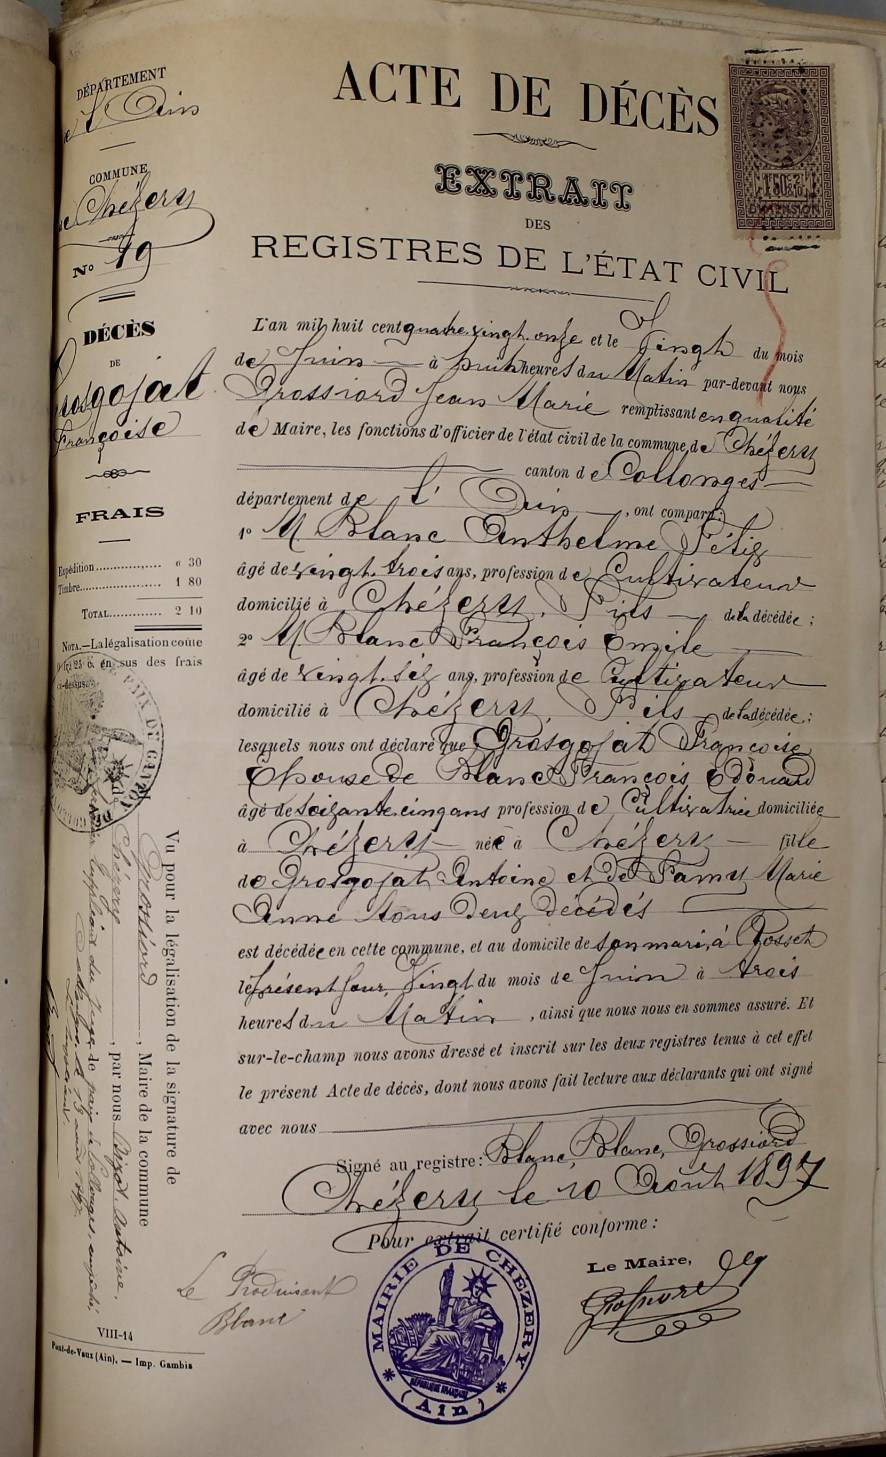 DÉPARTEMENT
de l'Ain
COMMUNE
de Chézery
N° 19
DÉCÈS
DE
Grosgojat
Françoise
FRAIS
Expédition............... " 30
Timbre.................. 1 80
TOTAL............ 2 10
NOTA.—La légalisation coûte
0 fr. 25 c. en sus des frais
ci-dessus.
ACTE DE DÉCÈS
EXTRAIT
DES
REGISTRES DE L'ÉTAT CIVIL
DIMENSION
L'an mil huit cent quatre vingt onze et le Vingt du mois
de Juin à huit heures du Matin par-devant nous
Grossiord Jean Marie remplissant en qualité
de Maire, les fonctions d'officier de l'état civil de la commune de Chézery
canton de Collonges
département de l'Ain, ont comparu:
1° M. Blanc Anthelme Félix
âgé de vingt-trois ans, profession de Cultivateur
domicilié à Chézery, Fils de la décédée;
2° M. Blanc François Emile
âgé de vingt-six ans, profession de Cultivateur
domicilié à Chézery, Fils de la décédée;
lesquels nous ont déclaré que Grosgojat Françoise
Epouse de Blanc François Edouard
âgé de soixante-cinq ans profession de Cultivatrice domiciliée
à Chézery née à Chézery fille
de Grosgojat Antoine et de Famy Marie
Anne tous deux décédés
est décédée en cette commune, et au domicile de son mari, à Rosset
le présent Jour, Vingt du mois de Juin à trois
heures du Matin, ainsi que nous nous en sommes assuré. Et
sur-le-champ nous avons dressé et inscrit sur les deux registres tenus à cet effet
le présent Acte de décès, dont nous avons fait lecture aux déclarants qui ont signé
avec nous
Signé au registre: Blanc, Blanc, Grossiord
Chézery le 10 Août 1897
Pour extrait certifié conforme:
Le Maire,
Grossiord
MAIRIE DE CHEZERY
RÉPUBLIQUE FRANÇAISE
(Ain)
Le Produisant
Blanc
Vu pour la légalisation de la signature de
M. Grossiord, Maire de la commune
de Chézery, par nous Antoine,
suppléant du Juge de paix à Collonges, empêché,
VIII-14
Pont-de-Vaux (Ain). — Imp. Gambis